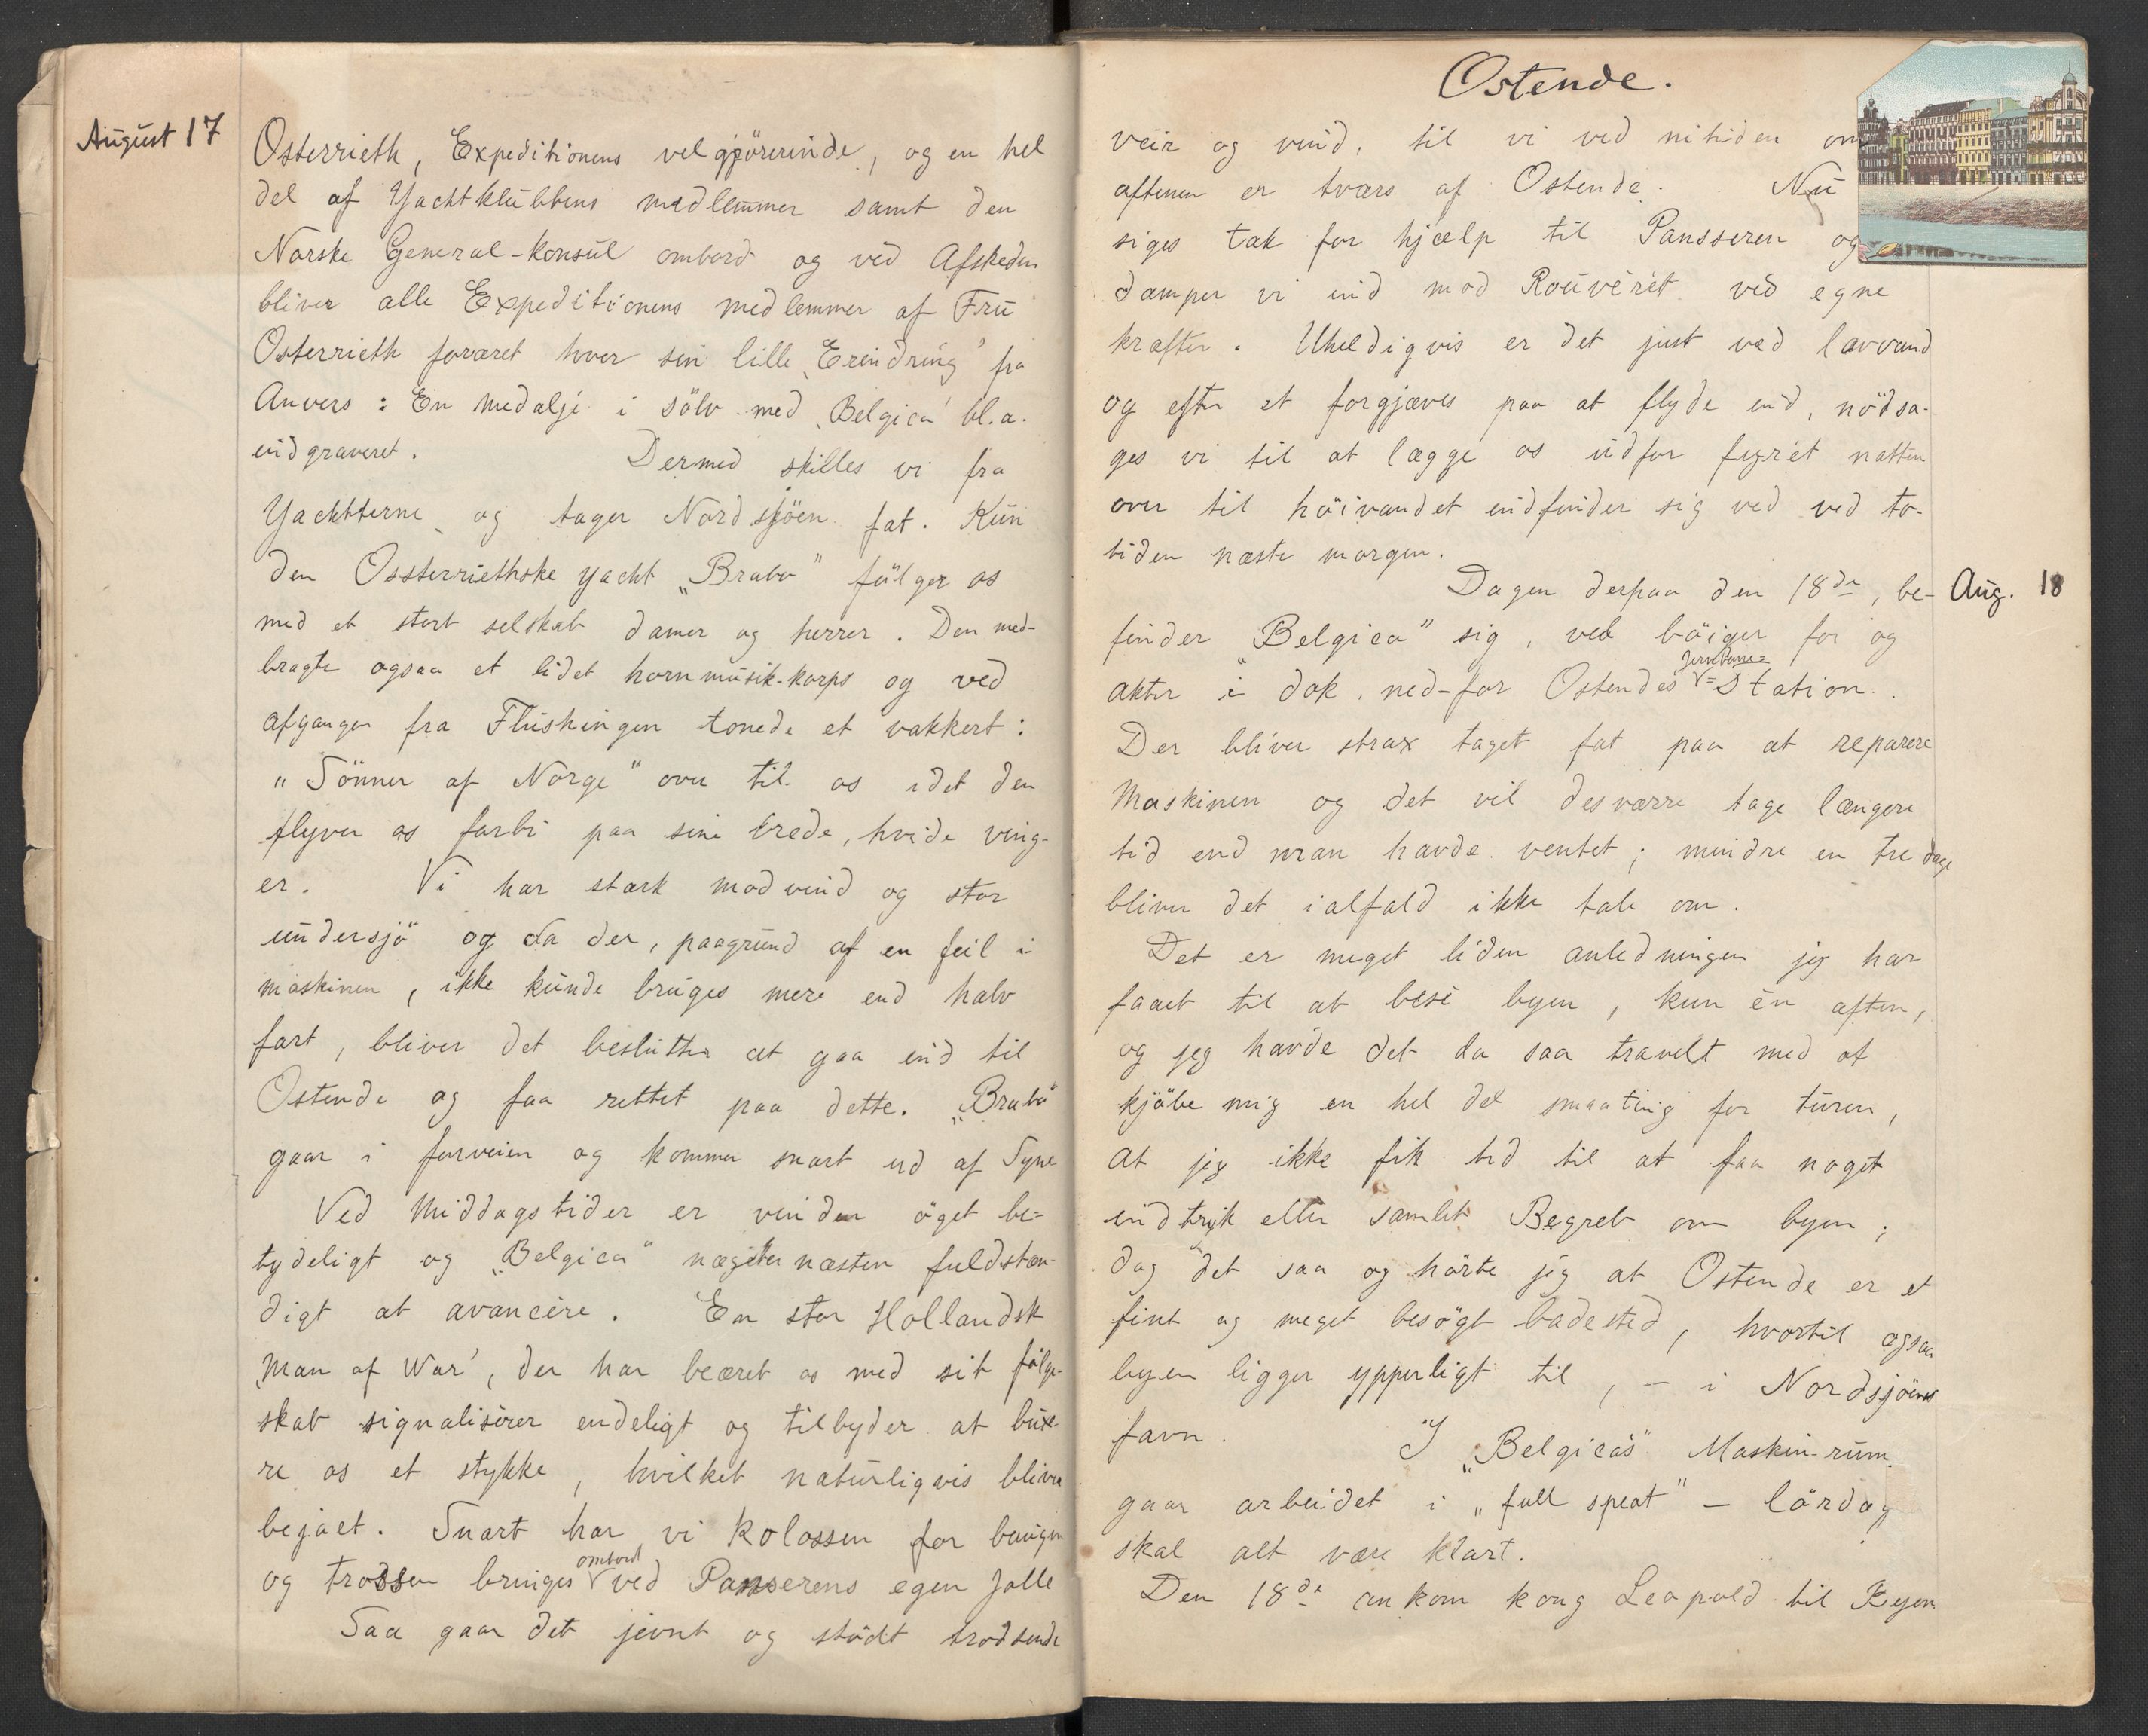 August 17
Osterrieth, Expeditionens velgjörerinde, og en hel
del af Yachtklübbens medlemmer samt den
Norske General-konsül ombord og ved Afskeden
bliver alle Expeditionens medlemmer af Frü
Osterrieth foræret hver sin lille „Erindring" fra
Anvers: En medalje i sölv med „Belgica" bl.a.
indgraveret. Dermed skilles vi fra
Yachtterne og tager Nordsjöen fat. Kün
den Ossterriethske yacht „Brabo" fölger os
med et stort selskab damer og herrer. Den med-
bragte ogsaa et lidet hornmüsik-korps og ved
afgangen fra Flüshingen tonede et vakkert:
"Sönner af Norge" over til os idet den
flyver os forbi paa sine brede, hvide ving-
er. Vi har stærk modvind og stor
ündersjö og da der, paagründ af en feil i
maskinen, ikke künde brüges mere end halv
fart, bliver det beslüttet at gaa ind til
Ostende og faa rettet paa dette. „Brabo"
gaar i forveien og kommer snart ud af Syne
Ved Middagstider er vinden öget be-
tydeligt og „Belgica" nægter næsten fuldstæn-
digt at avancére. En stor Hollandsk
„Man of War', der har beæret os med sit fölge-
skab signalisérer endeligt og tilbyder at büxe-
re os et stykke, hvilket natürligvis bliver
bejaet. Snart har vi kolossen for baugen
og trossen bringes ombord ved Panserens egen Jolle
Saa gaar det jevnt og stödt trodsende
Ostende.
veir og vind, til vi ved nitiden om
aftenen er tvers af Ostende. Nü
siges tak for hjælp til Pansseren og
damper vi ind mod Roüvéret ved egne
kræfter. Uheldigvis er det just ved lavvand
og efter et forgjæves paa at flyde ind, nödsa-
ges vi til at lægge os üdfor fyrét natten
over til höivandet indfinder sig ved ved to-
tiden næste morgen.
Dagen derpaa den 18de, be-
Aug. 18
finder „Belgica" sig, ved böiger for og
akter i dok, ned-for Ostendes Jernbane=Station.
Der bliver strax taget fat paa at reparere
Maskinen og det vil desværre tage længere
tid end man havde ventet; mindre en tre dage
bliver det ialfald ikke tale om.
Det er meget liden anledningen jeg har
faaet til at besé byen, kun én aften,
og jeg havde det da saa travelt med at
kjöbe mig en hel del smaating for türen,
at jeg ikke fik tid til at faa noget
indtryk eller samlet Begreb om byen;
dog det saa og hörte jeg at Ostende er et
fint og meget besögt badested, hvortil ogsaa
byen ligger ypperligt til, – i Nordsjöens
favn. I „Belgica's" Maskin-rüm
gaar arbeidet i „full speat" – lördag
skal alt være klart.
Den 18de ankom kong Leopold til Byen